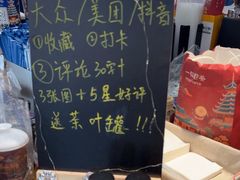 大众/美团/抖音
①收藏 ②打卡
③评论30字
3张图+5星好评
送茶叶罐!!!